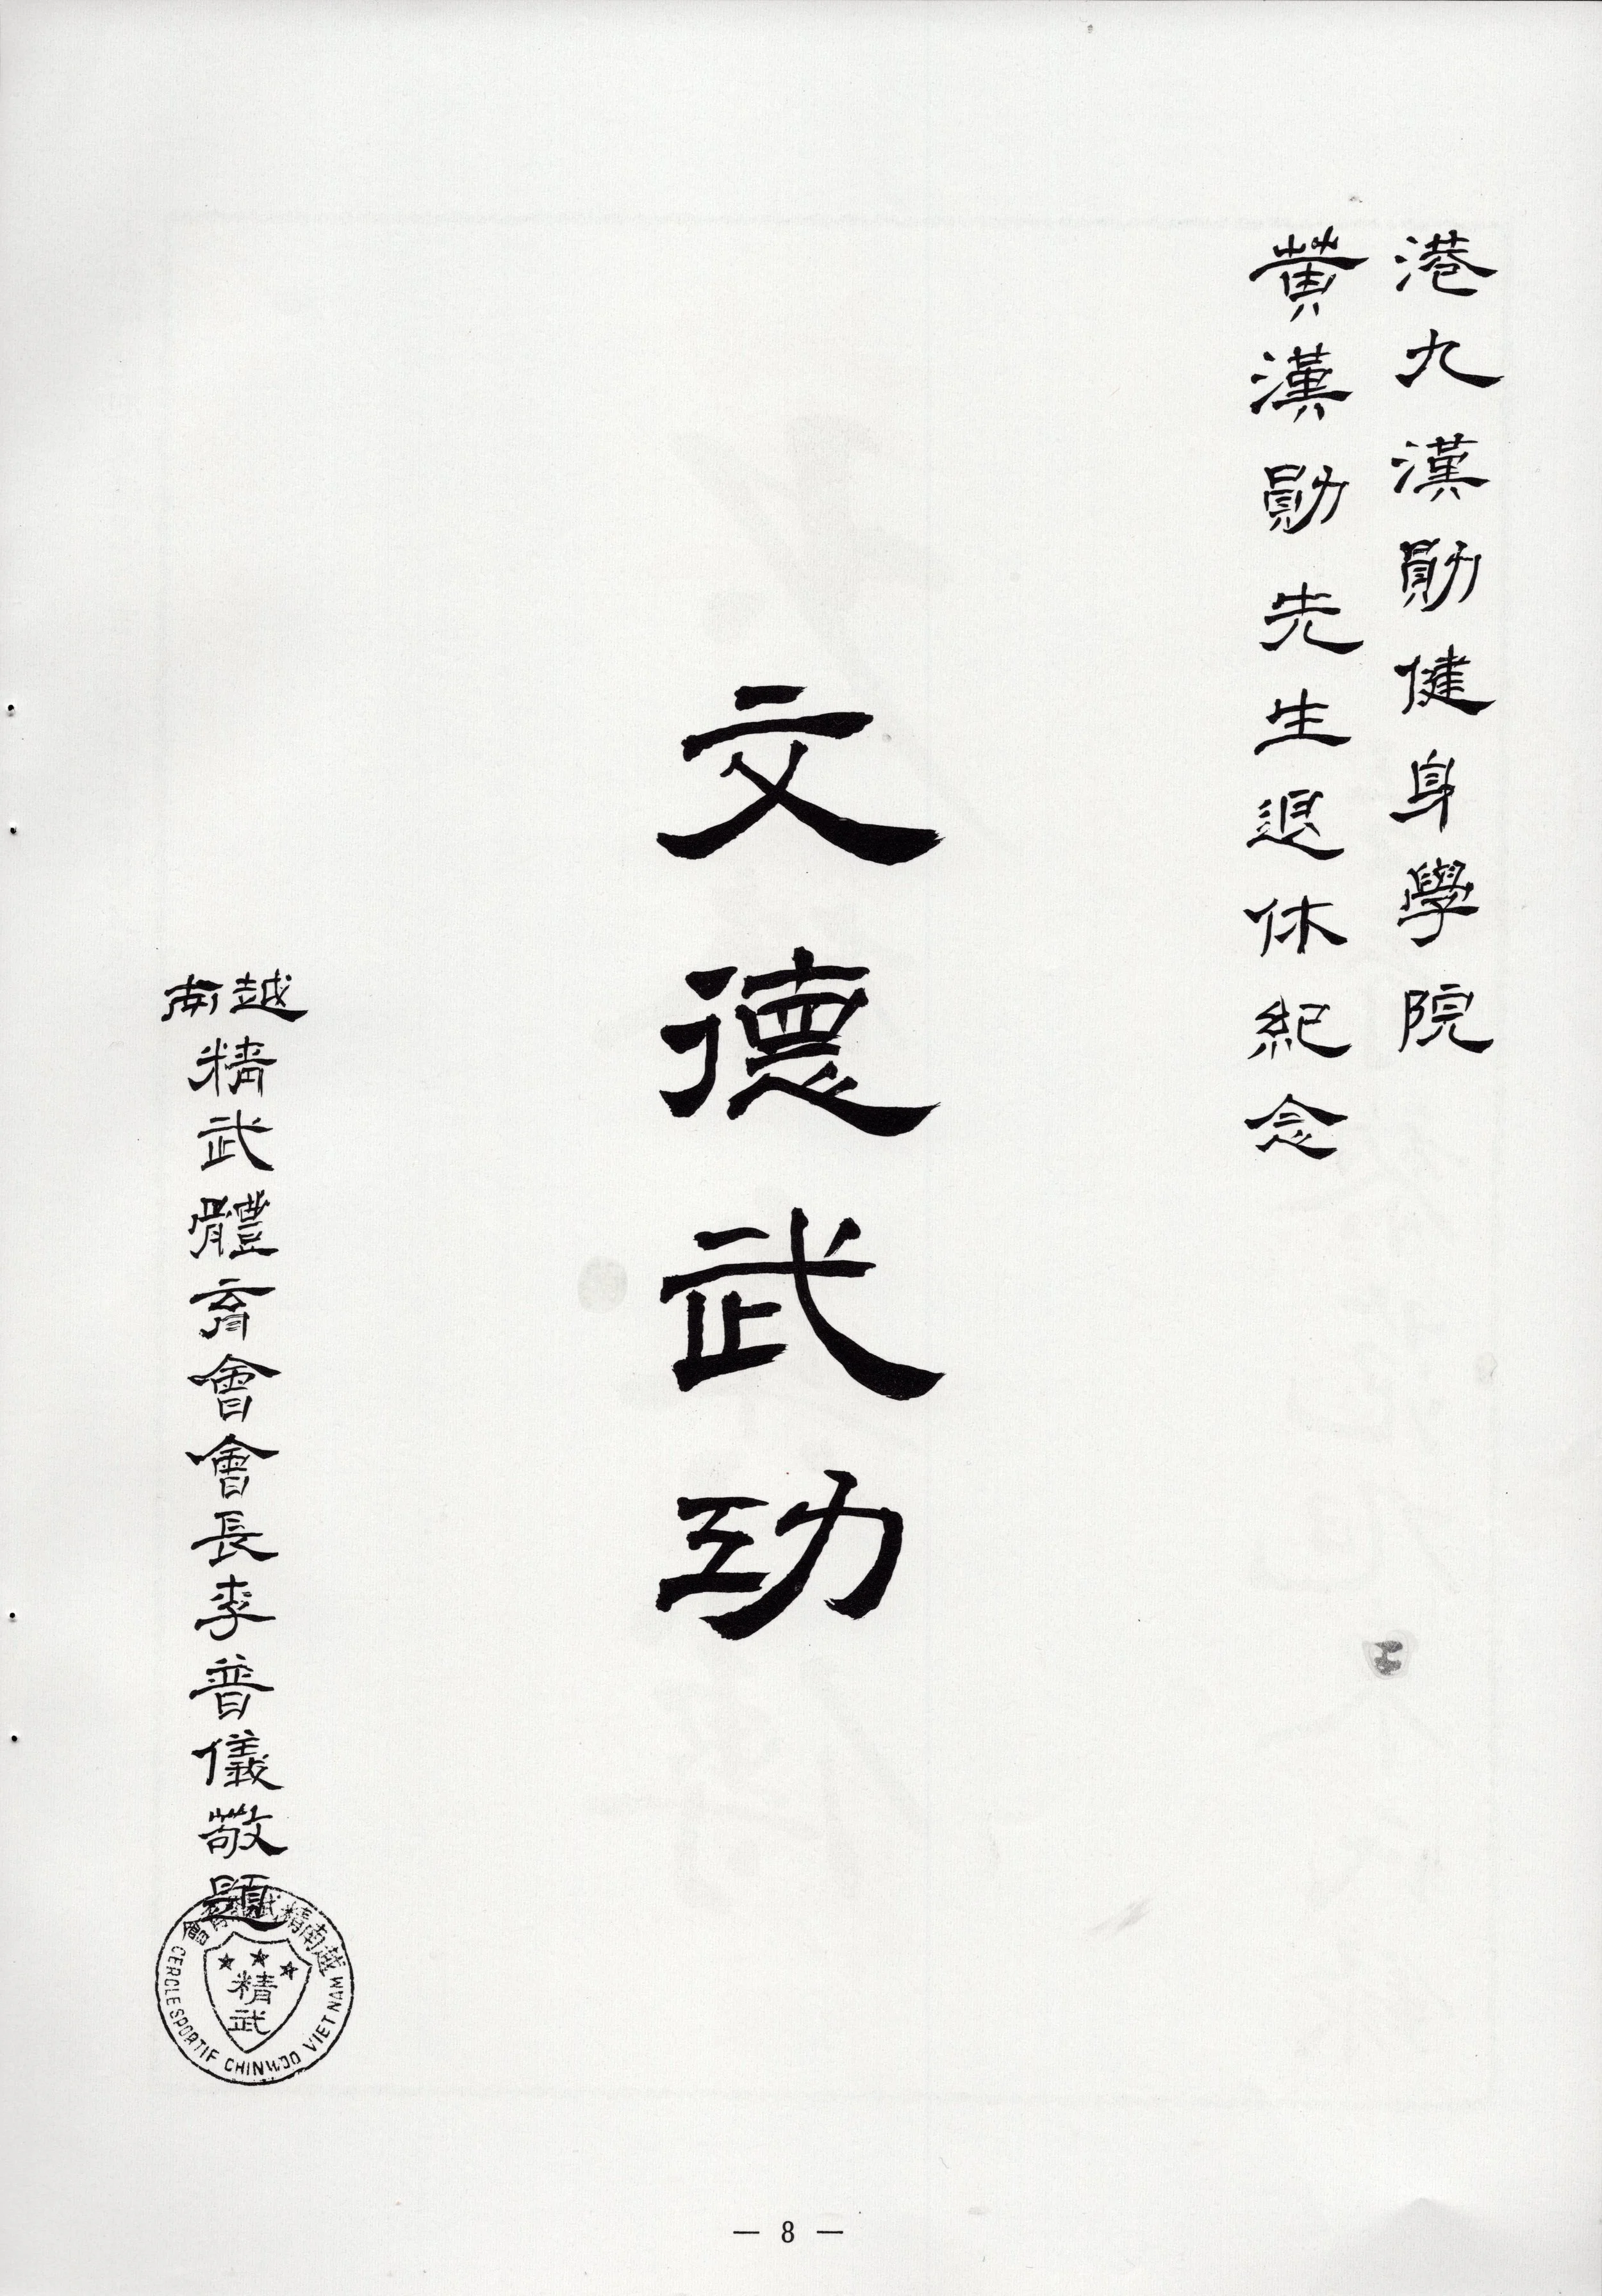 港九漢勛健身學院
黃漢勛先生退休紀念
文德武功
越南精武體育會會長李普儀敬題
越南精武體育會
精武
CERCLE SPORTIF CHINWOO VIET NAM
— 8 —